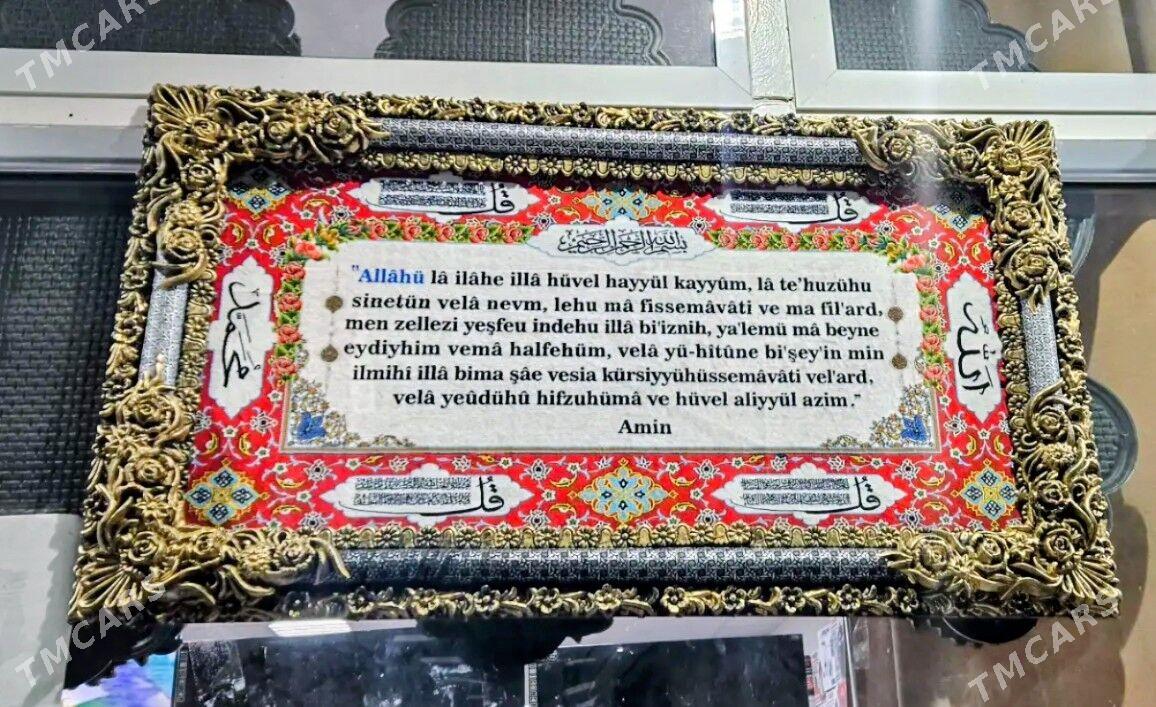 TMCARS
TMCARS
قل
قل
بسم الله الرحمن الرحيم
"Allâhü lâ ilâhe illâ hüvel hayyül kayyûm, lâ te'huzühu
sinetün velâ nevm, lehu mâ fissemâvâti ve ma fil'ard,
men zellezi yeşfeu indehu illâ bi'iznih, ya'lemü mâ beyne
eydiyhim vemâ halfehüm, velâ yü-hîtûne bi'şey'in min
ilmihî illâ bima şâe vesia kürsiyyühüssemâvâti vel'ard,
velâ yeûdühû hifzuhümâ ve hüvel aliyyül azim."
Amin
محمد
الله
قل
قل
TMCARS
TMCARS